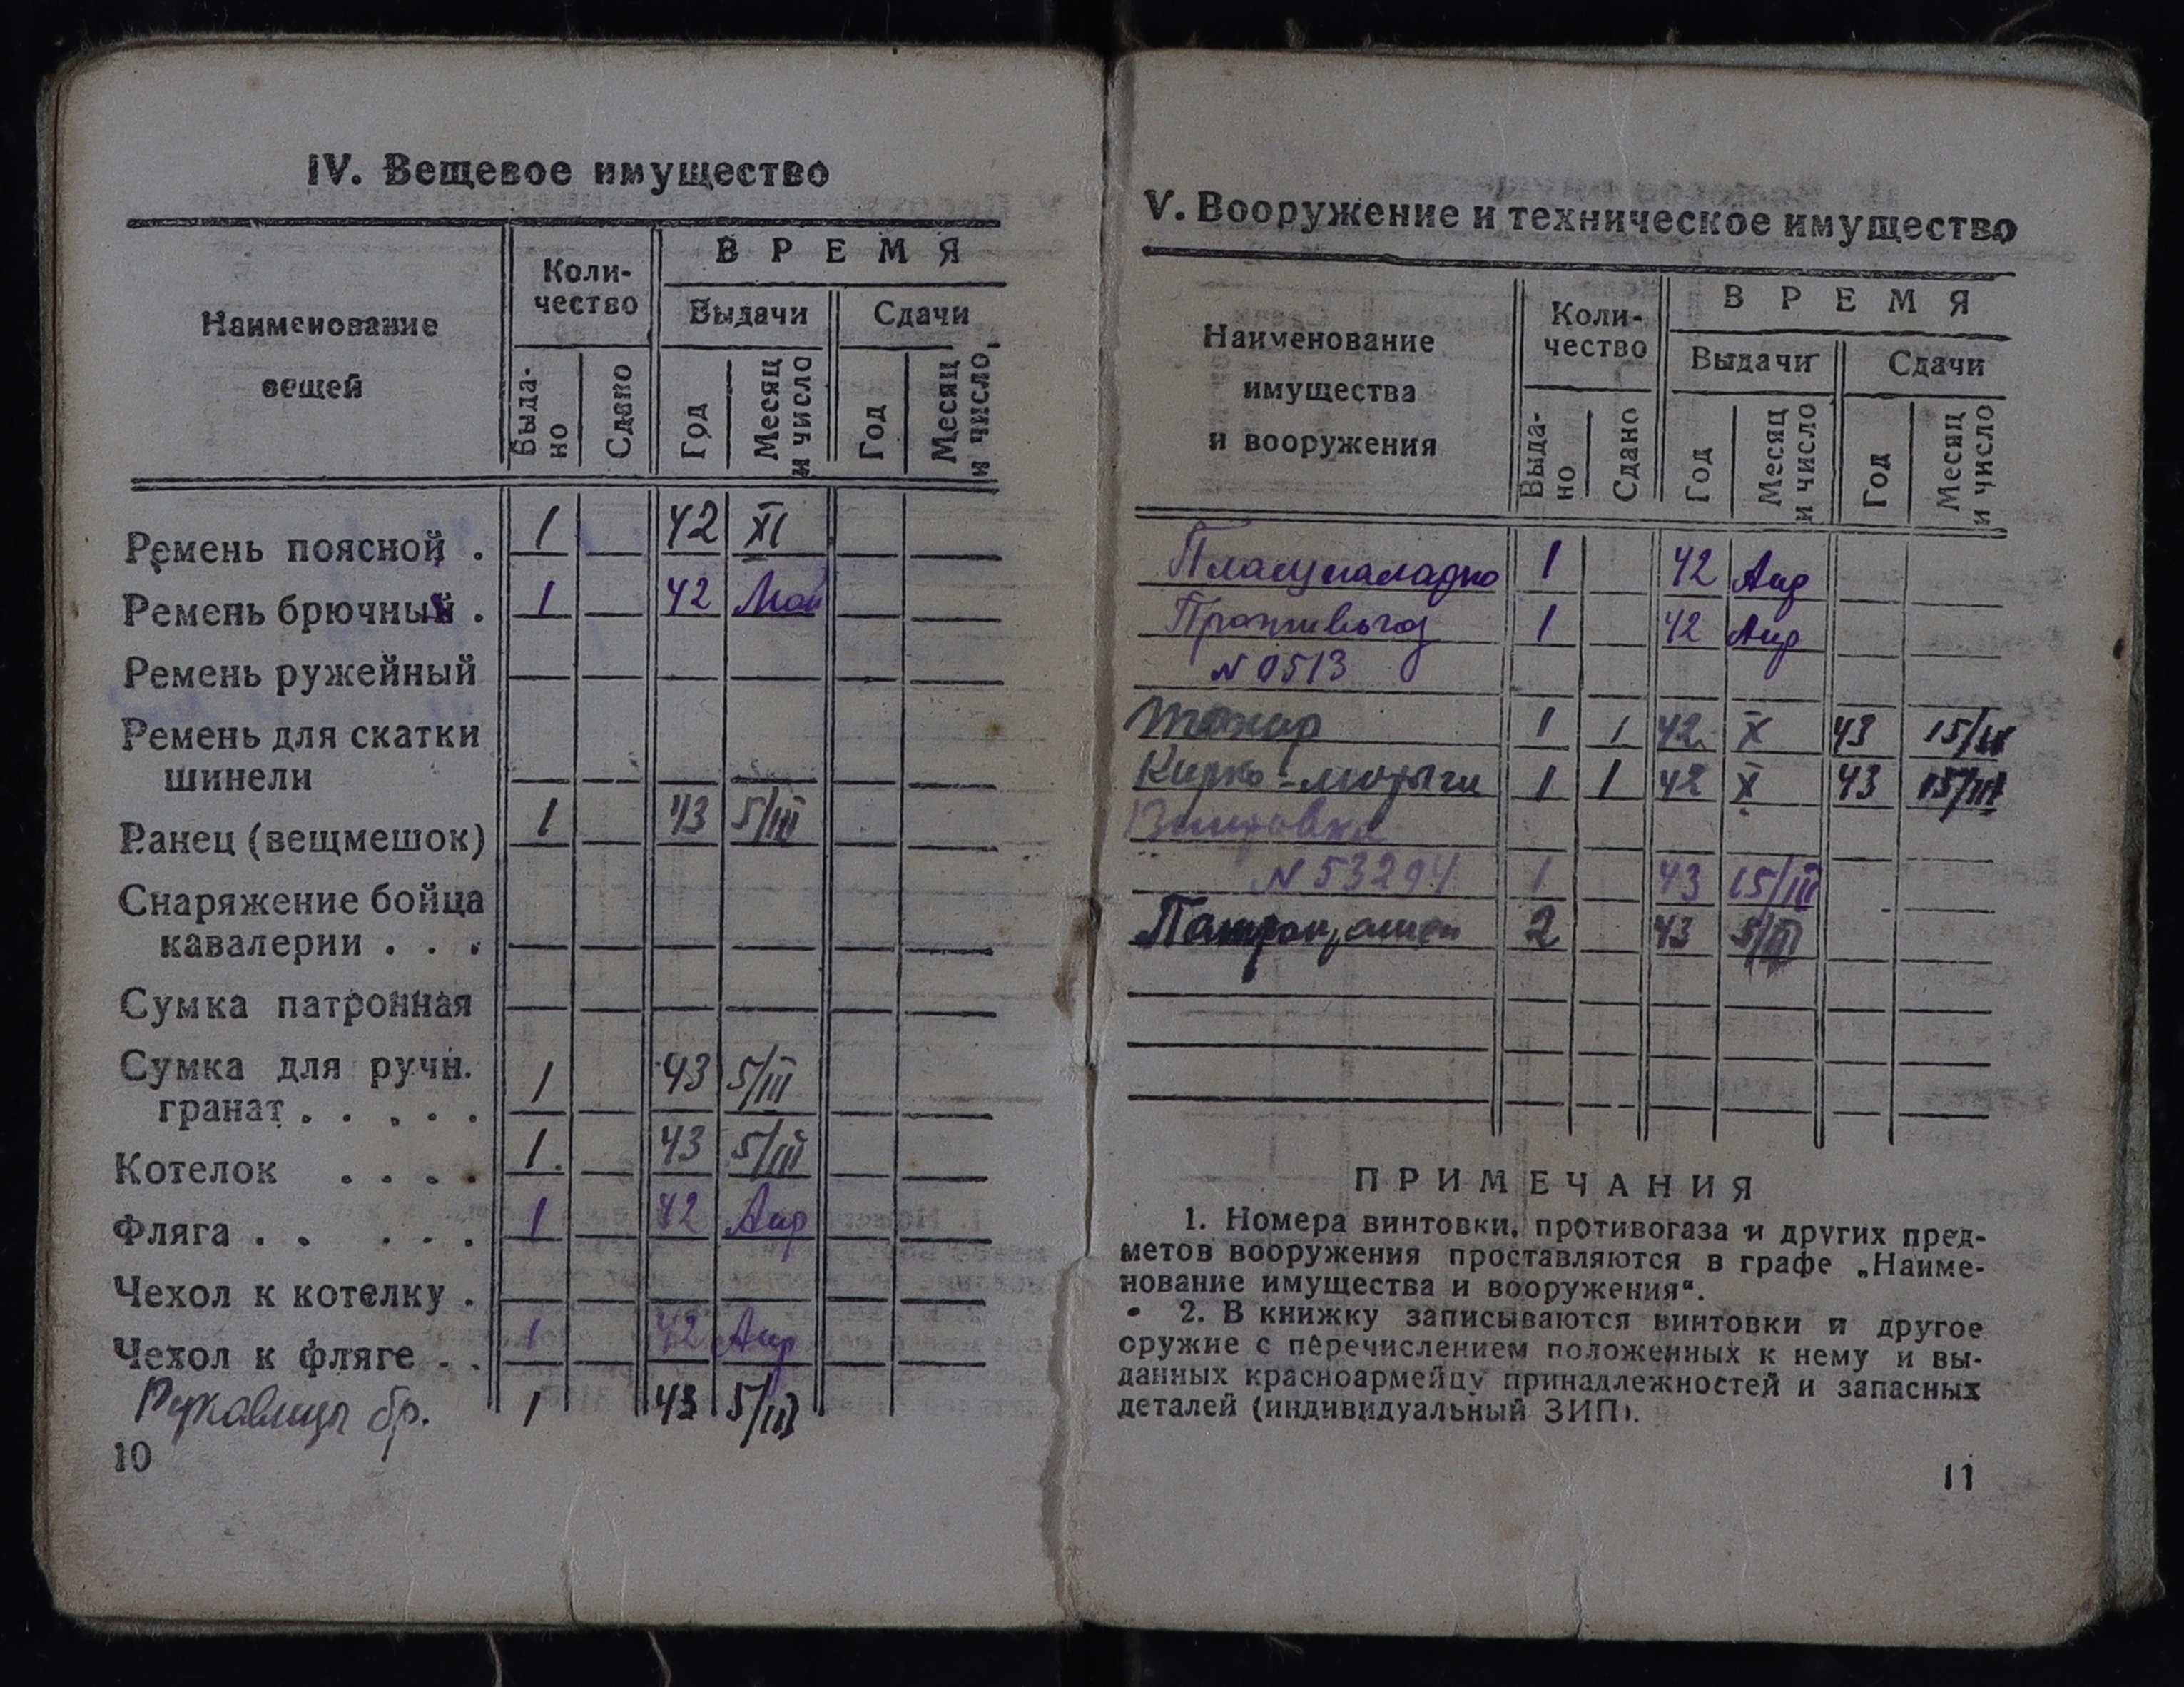 IV. Вещевое имущество
Наименование вещей
Коли-
чество
ВРЕМЯ
Выдачи
Сдачи
Выда-
но
Сдано
Год
Месяц
и число
Год
Месяц
и число
Ремень поясной . 1 42 XI
Ремень брючный . 1 42 Май
Ремень ружейный
Ремень для скатки
шинели
Ранец (вещмешок) 1 43 5/III
Снаряжение бойца
кавалерии . . .
Сумка патронная
Сумка для ручн.
гранат . . . . . 1 43 5/III
Котелок . . . . 1. 43 5/III
Фляга . . . . . 1 42 Апр
Чехол к котелку .
Чехол к фляге . . 1 42 Апр
Рукавицы бр. 1 43 5/III
10
V. Вооружение и техническое имущество
Наименование
имущества
и вооружения
Коли-
чество
ВРЕМЯ
Выдачи
Сдачи
Выда-
но
Сдано
Год
Месяц
и число
Год
Месяц
и число
1 42 Апр
Противогаз 1 42 Апр
N 0513
Топор 1 1 42 X 43 15/III
Кирко-мотыги 1 1 42 X 43 15/III
Винтовка
N 53294 1 43 15/III
2 43 5/III
ПРИМЕЧАНИЯ
1. Номера винтовки, противогаза и других пред-
метов вооружения проставляются в графе „Наиме-
нование имущества и вооружения“.
2. В книжку записываются винтовки и другое
оружие с перечислением положенных к нему и вы-
данных красноармейцу принадлежностей и запасных
деталей (индивидуальный ЗИП).
11